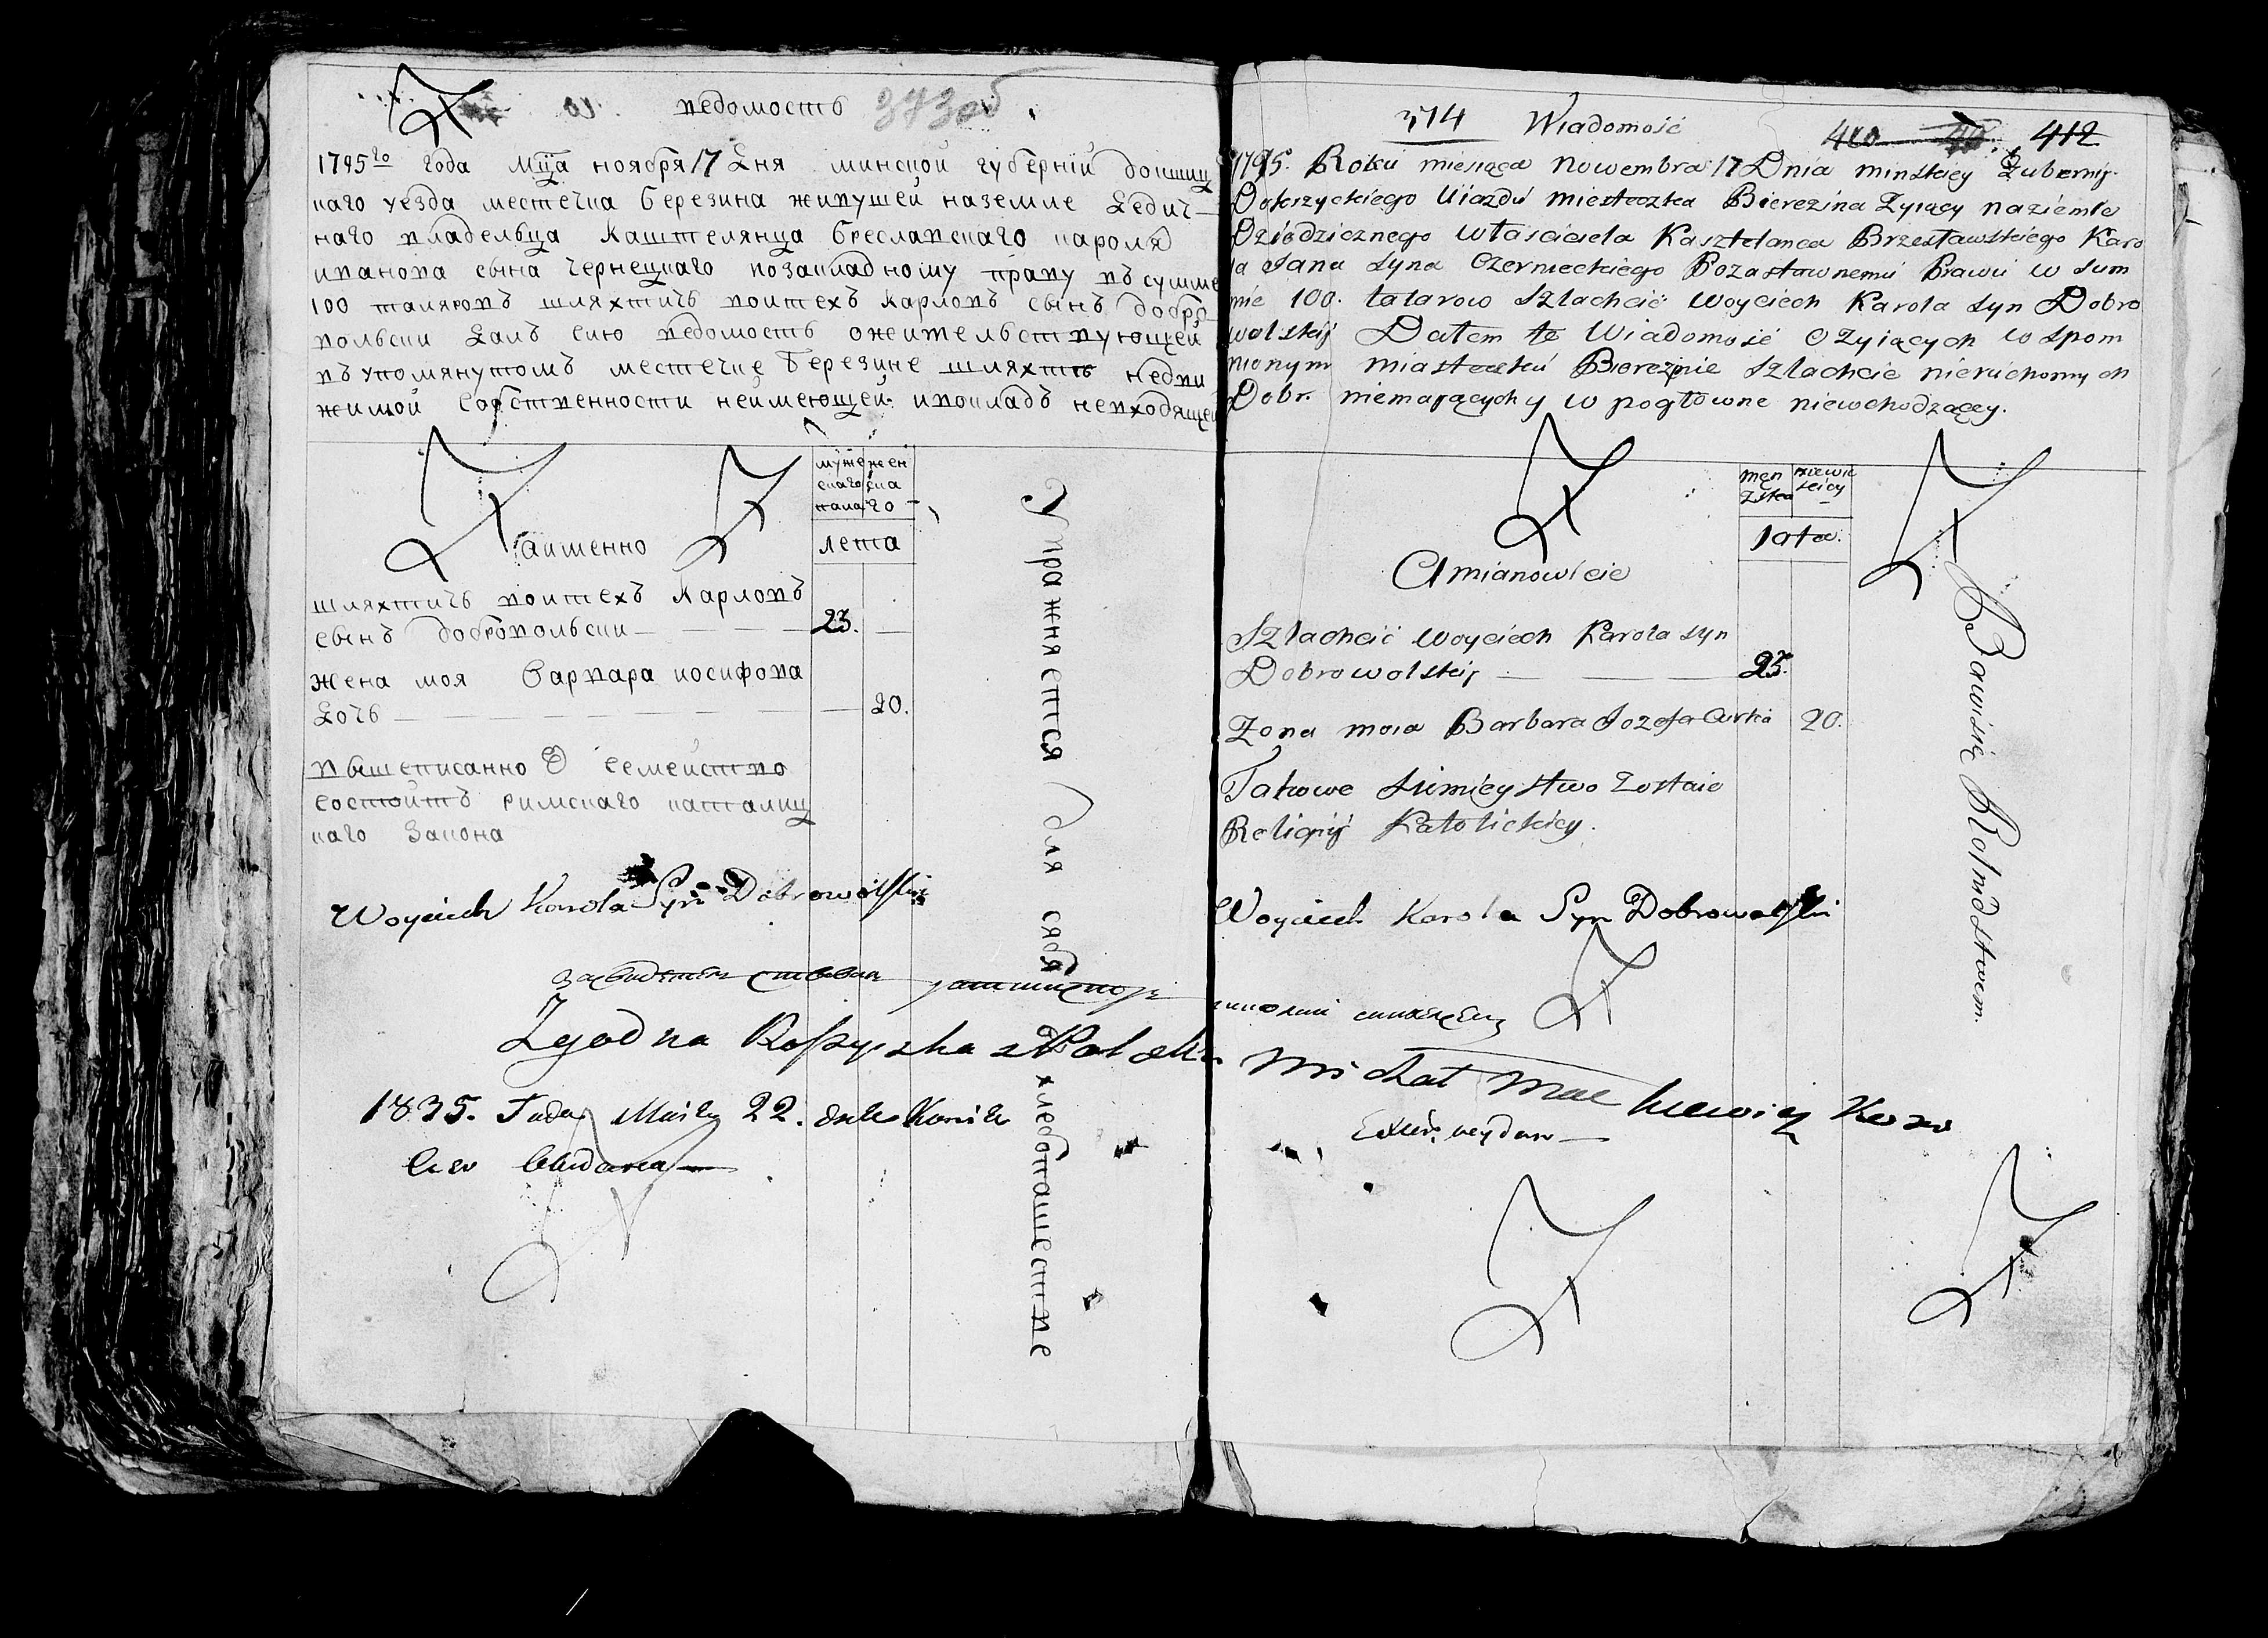 ведомость 373об
1795го года Мца ноября 17 дня минской губерніи докшиц
каго уезда местечка березина живущей наземле дедич
наго владельца каштелянца бреславскаго кароля
иванова сына чернецкаго позакладному праву въ сумме
100 таляровъ шляхтичъ войтехъ карловъ сынъ добро
вольски далъ сию ведомость ожительствующей
въ упомянутомъ местечке березине шляхте недви
жимой собственности неимеющей ивокладъ невходящей
муже скаго жен ска
каго
лета
Имянно
шляхтичъ войтехъ карловъ
сынъ добровольски 23.
жена моя барвара иосифова
дочь 20.
вышеписанно Е семейство
состоитъ римскаго катталиц
каго закона
Упражняется для сябя хлебопашестве
Woyciech Karola Syn Dobrowolski
Zgodna Roszyska z Polską
1835. Года Маія 22. дня
374 Wiadomość 412
1795. Roku miesiąca Nowembra 17 Dnia minskiey Gubernij
Dokszyckiego Uiazdu miesteczka Bierezina Zyiący naziemle
Dziedzicznego właściciela Kasztelanca Brzesławskiego Karo
la Jana Syna Czernieckiego Pozastawnemu Prawu w Sum
mie 100. talarow Szlachcić Woyciech Karola Syn Dobro
wolskij Dałem te Wiadomość OZyiących w Spom
nionym miasteczku Bierezinie Szlachcie nieruchomych
Dobr. niemających y w pogłowne niewchodzącey.
męn zska niewie sciey
lata.
Amianowicie
Szlachcić Woyciech Karola syn
Dobrowolskij 23.
Zona moia Barbara Jozefa Curka 20.
Takowe Simieystwo Zostaie
Religij Katolickiey.
Bawisię Rolnidstwem.
Woyciech Karola Syn Dobrowolski
Michał